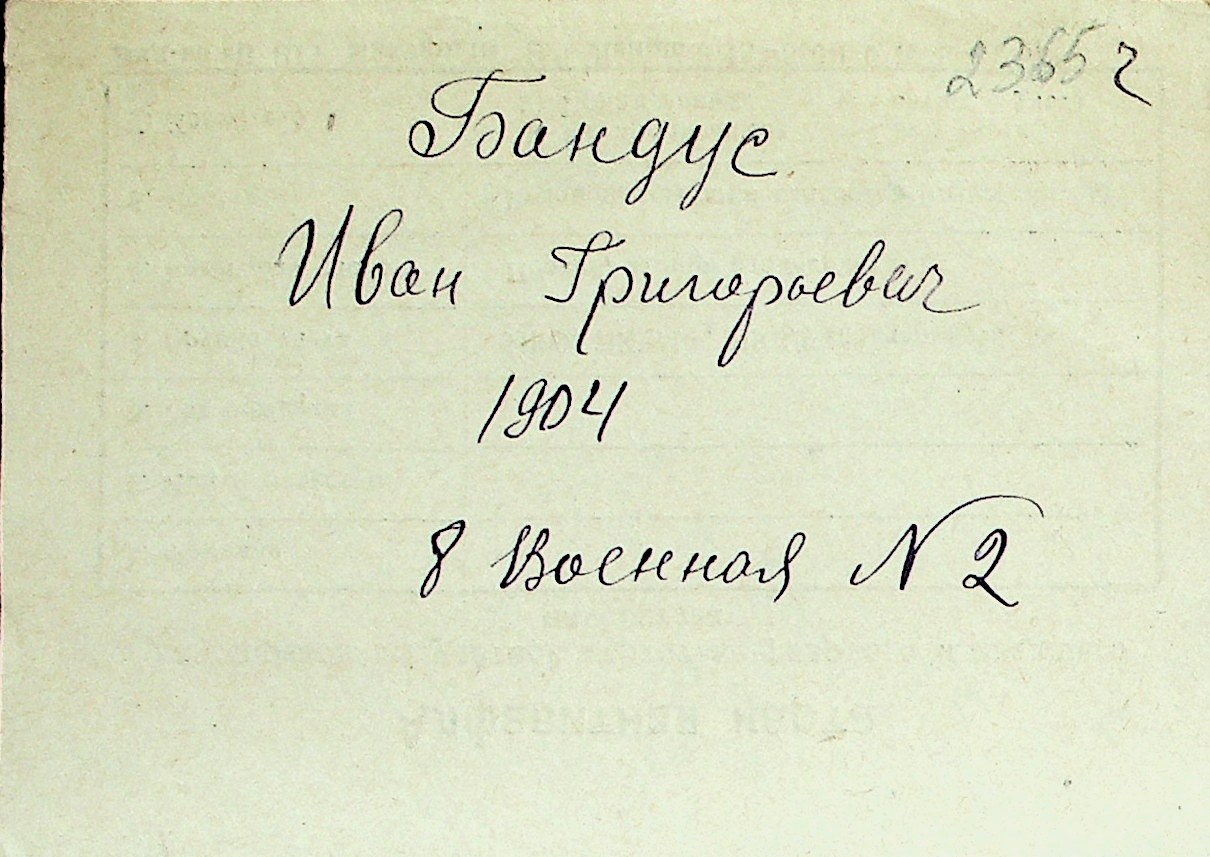 2365 ч
Бандус
Иван Григорьевич
1904
8 Военная N 2